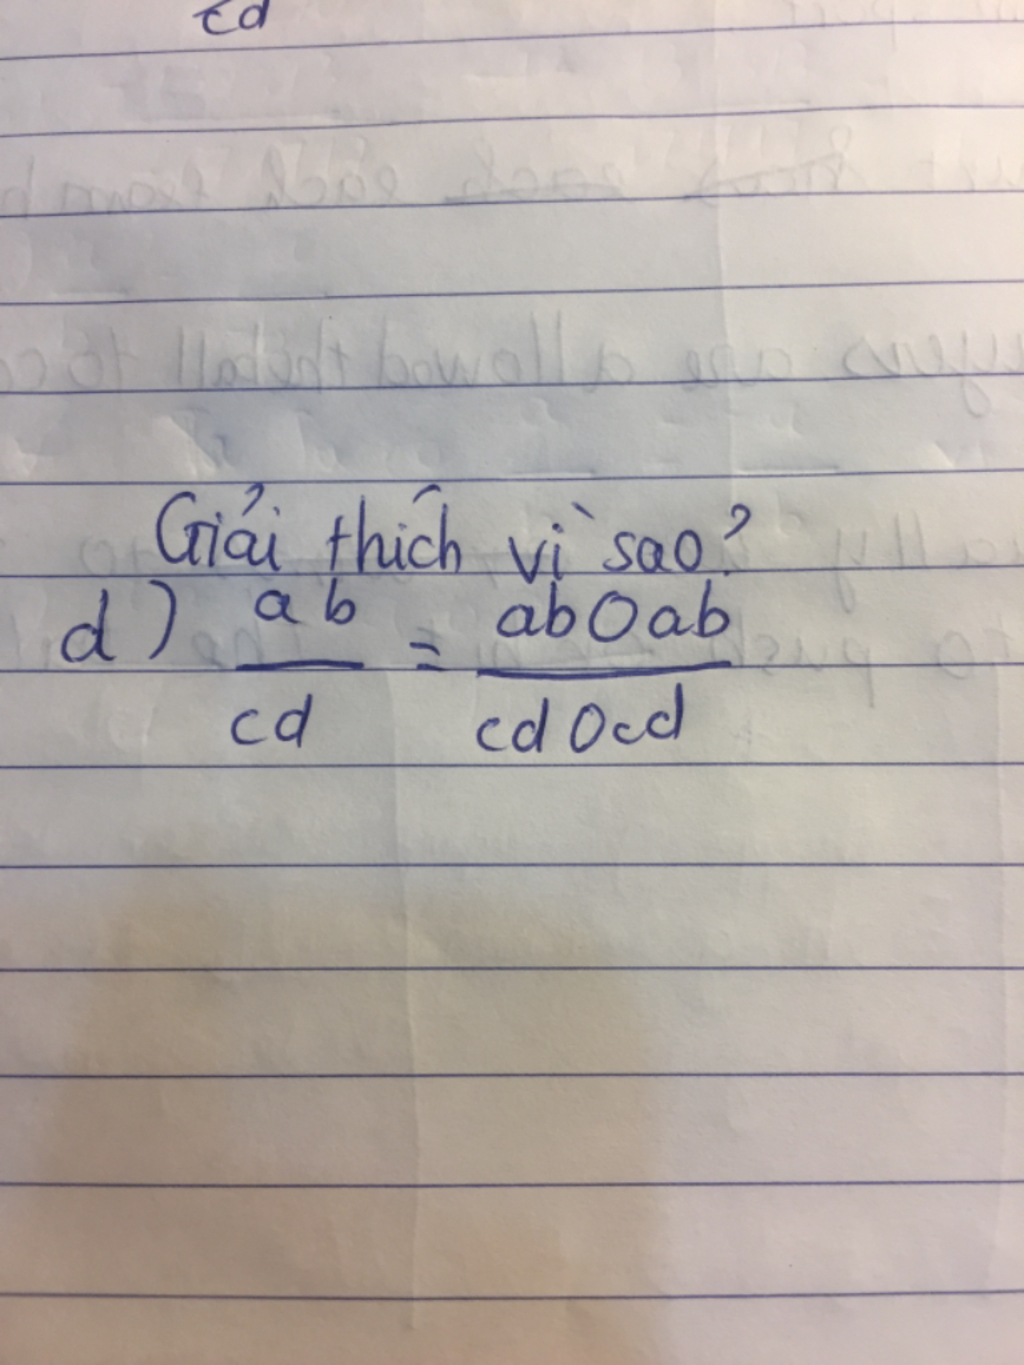 cd
Giải thích vì sao?
d) ab/cd = ab0ab/cd0cd